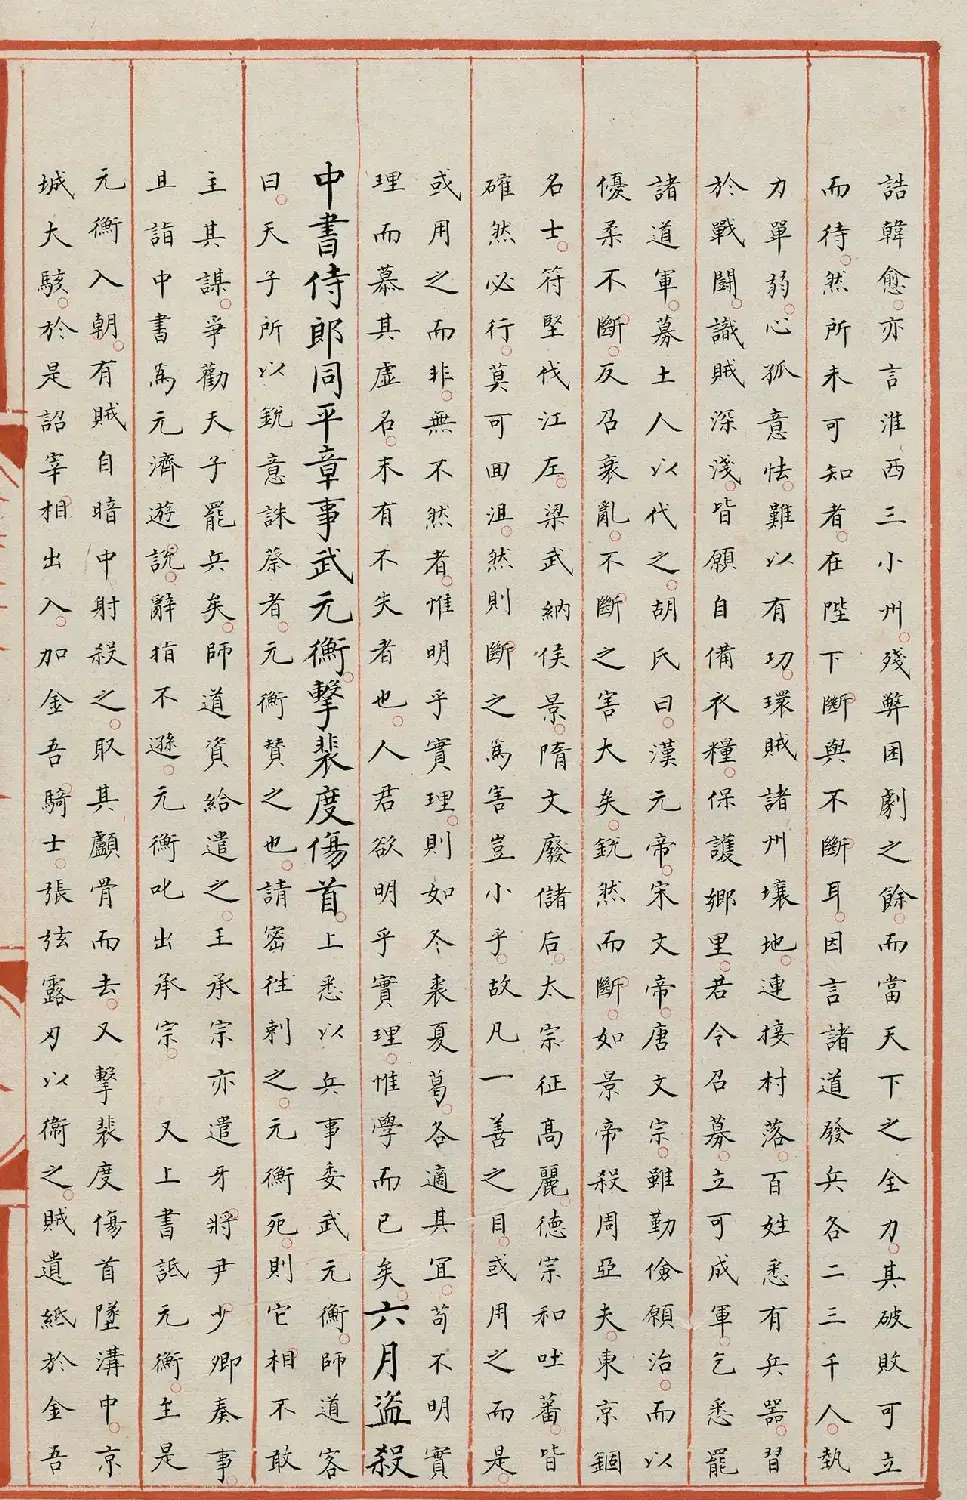 誥韓愈亦言淮西三小州殘弊困劇之餘而當天下之全力其破敗可立
而待然所未可知者在陛下斷與不斷耳因言諸道發兵各二三千人埶
力單弱心孤意怯難以有功環賊諸州壤地連接村落百姓悉有兵器習
於戰鬪識賊深淺皆願自備衣糧保護鄉里君令召募立可成軍乞悉罷
諸道軍募土人以代之胡氏曰漢元帝宋文帝唐文宗雖勤儉願治而以
優柔不斷反召衰亂不斷之害大矣銳然而斷如景帝殺周亞夫東京錮
名士符堅伐江左梁武納侯景隋文廢儲后太宗征高麗德宗和吐蕃皆
確然必行莫可回沮然則斷之爲害豈小乎故凡一善之目或用之而是
或用之而非無不然者惟明乎實理則如冬裘夏葛各適其宜苟不明實
理而慕其虛名未有不失者也人君欲明乎實理惟學而已矣六月盜殺
中書侍郎同平章事武元衡擊裴度傷首上悉以兵事委武元衡師道客
曰天子所以銳意誅蔡者元衡贊之也請密往刺之元衡死則它相不敢
主其謀爭勸天子罷兵矣師道資給遣之王承宗亦遣牙將尹少卿奏事
且詣中書爲元濟遊說辭指不遜元衡叱出承宗又上書詆元衡至是
元衡入朝有賊自暗中射殺之取其顱骨而去又擊裴度傷首墜溝中京
城大駭於是詔宰相出入加金吾騎士張弦露刃以衛之賊遺紙於金吾